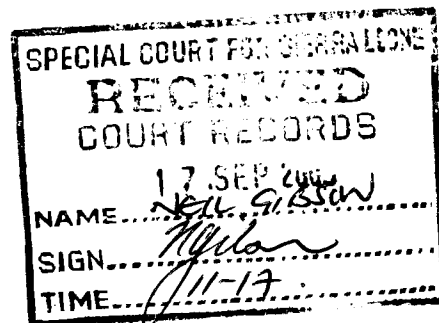 SPECIAL COURT FOR SIERRA LEONE
RECEIVED
COURT RECORDS
17 SEP
NAME NEIL GIBSON
SIGN
TIME 11-17